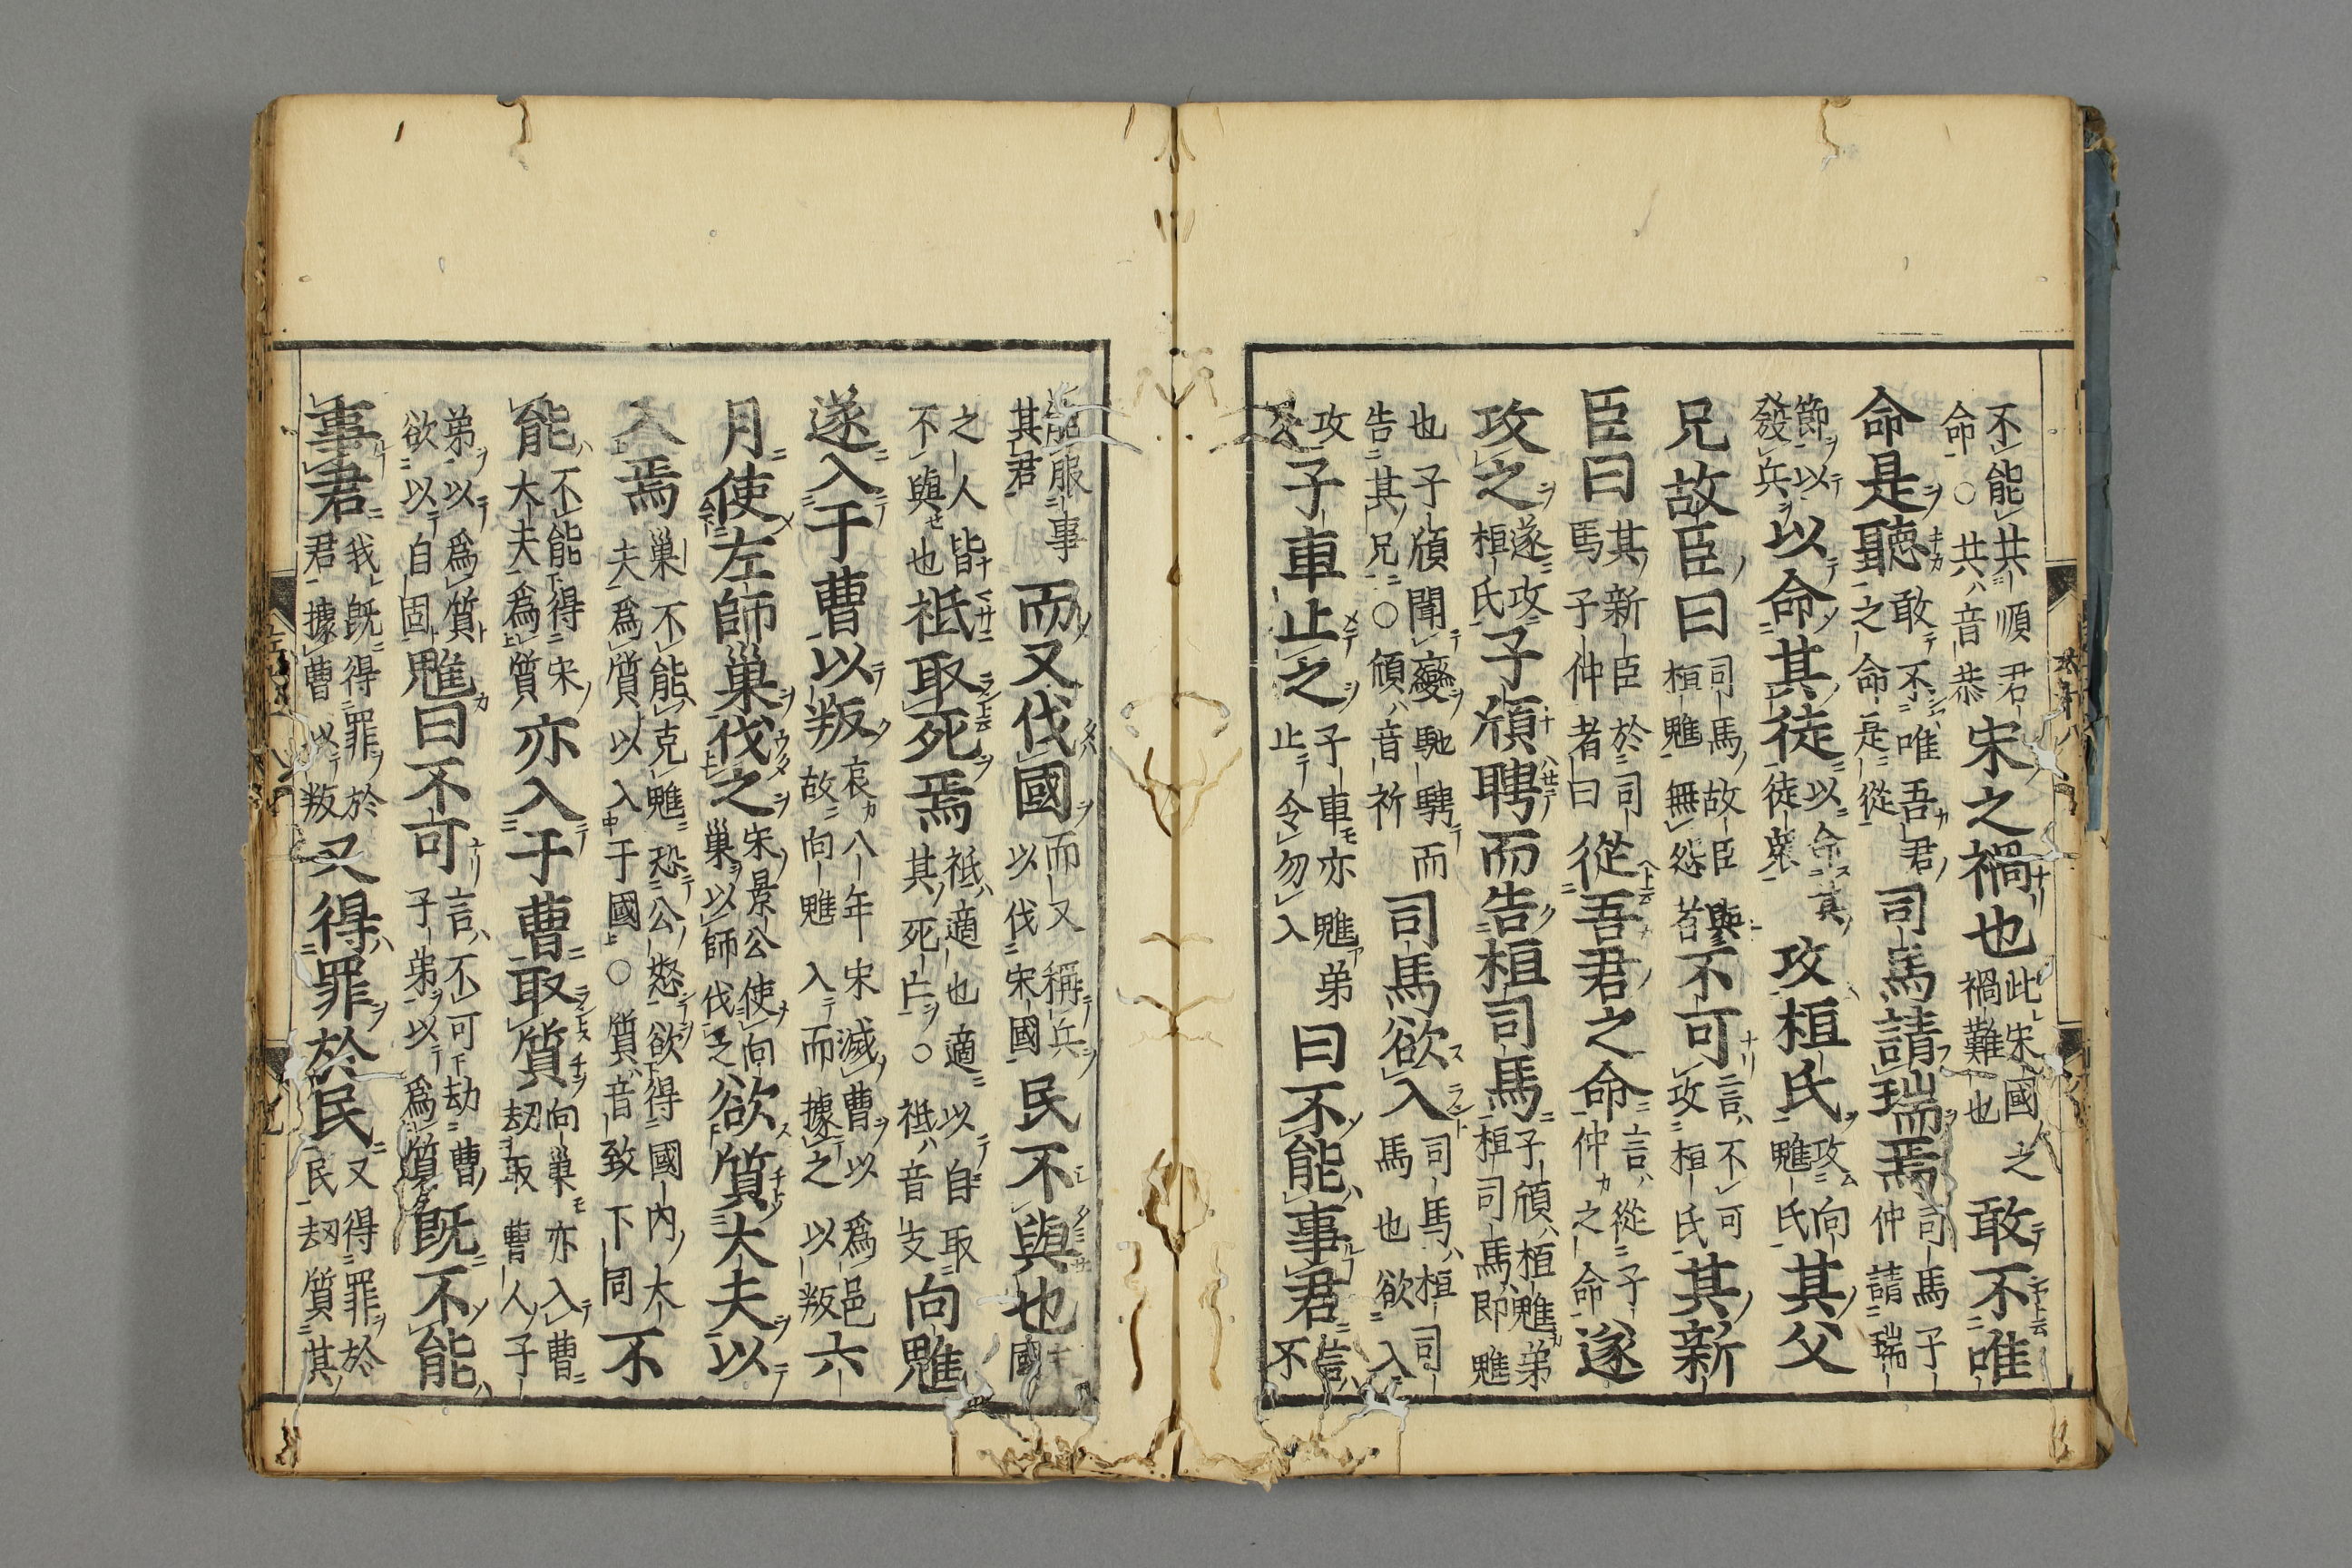 不能共順君命○共音恭宋之禍也此宋國之禍難也敢不唯
命是聽敢不唯吾君之命是從司馬請瑞焉司馬子仲請瑞
節以發兵以命其徒以命其徒衆攻桓氏攻向魋氏其父
兄故臣曰司馬故臣與桓魋無怨者不可言不可攻桓氏其新
臣曰其新臣於司馬子仲者曰從吾君之命言從子仲之命遂
攻之遂攻桓氏子頎騁而告桓司馬子頎桓魋弟桓司馬即魋
也子頎聞變馳騁而告其兄○頎音祈司馬欲入司馬桓司馬也欲入
攻公子車止之子車亦魋弟止令勿入曰不能事君言不
能服事其君而又伐國而又稱兵以伐宋國民不與也國
之人皆不與也祇取死焉祇適也適以自取其死亡○祇音支向魋
遂入于曹以叛哀八年宋滅曹以爲邑故向魋入而據之以叛六
月使左師巢伐之宋景公使向巢以師伐之欲質大夫以
入焉巢不能克魋恐公怒欲得國內大夫爲質以入于國○質音致下同不
能不能得宋大夫爲質亦入于曹取質向巢亦入曹劫取曹人子
弟以爲質欲以自固魋曰不可言不可劫曹子弟以爲質既不能
事君我既得罪於君據曹以叛又得罪於民又得罪於民劫質其